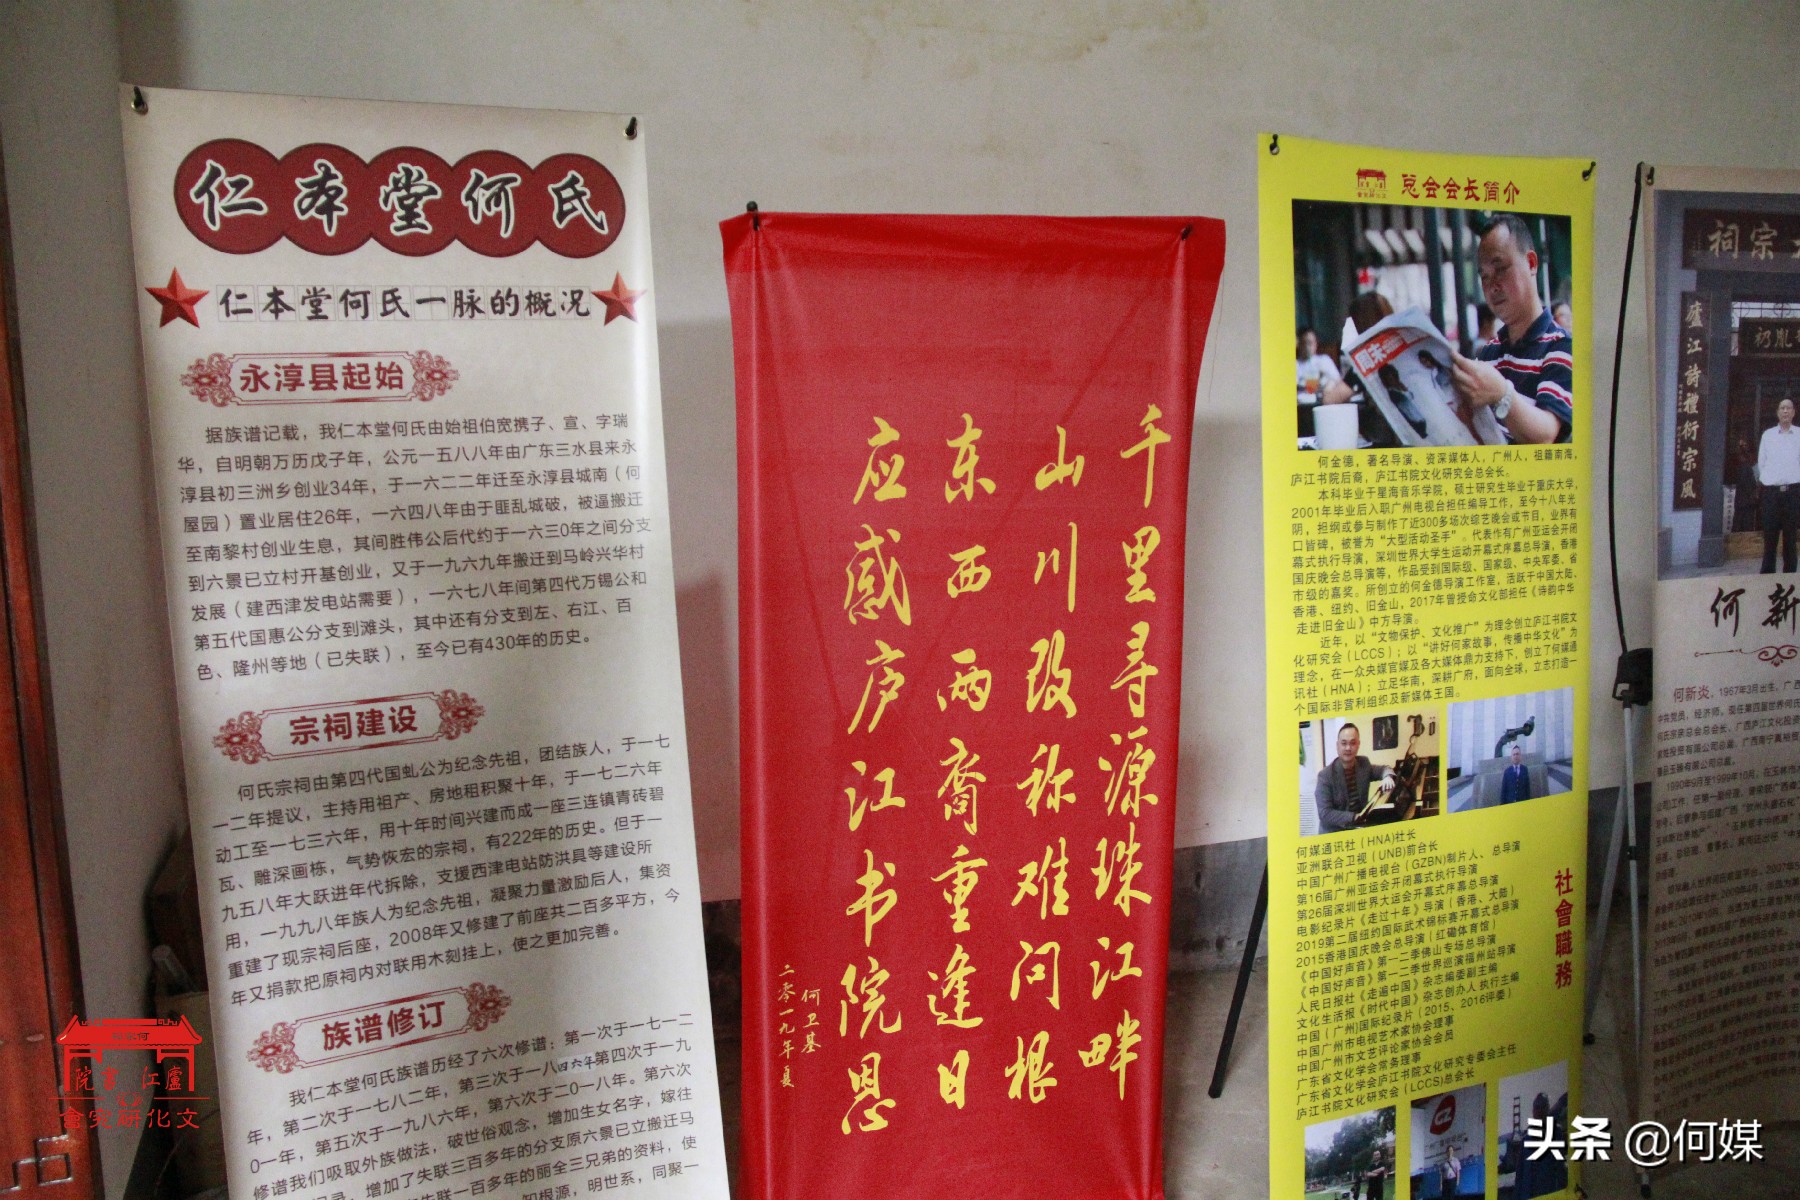 仁本堂何氏
仁本堂何氏一脉的概况
永淳县起始
据族谱记载，我仁本堂何氏由始祖伯宽携子、宣、字瑞
华，自明朝万历戊子年，公元一五八八年由广东三水县来永
淳县初三洲乡创业34年，于一六二二年迁至永淳县城南（何
屋园）置业居住26年，一六四八年由于匪乱城破，被逼搬迁
至南黎村创业生息，其间胜伟公后代约于一六三0年之间分支
到六景已立村开基创业，又于一九六九年搬迁到马岭兴华村
发展（建西津发电站需要），一六七八年间第四代万锡公和
第五代国惠公分支到滩头，其中还有分支到左、右江、百
色、隆州等地（已失联），至今已有430年的历史。
宗祠建设
何氏宗祠由第四代国虬公为纪念先祖，团结族人，于一七
一二年提议，主持用祖产、房地租积聚十年，于一七二六年
动工至一七三六年，用十年时间兴建而成一座三连镇青砖碧
瓦、雕深画栋，气势恢宏的宗祠，有222年的历史。但于一
九五八年大跃进年代拆除，支援西津电站防洪具等建设所
用，一九九八年族人为纪念先祖，凝聚力量激励后人，集资
重建了现宗祠后座，2008年又修建了前座共二百多平方，今
年又捐款把原祠内对联用木刻挂上，使之更加完善。
族谱修订
我仁本堂何氏族谱历经了六次修谱；第一次于一七一二
年，第二次于一七八二年，第三次于一八四六年第四次于一九
0一年，第五次于一九八六年，第六次于二0一八年。第六次
修谱我们吸取外族做法，破世俗观念，增加生女名字，嫁往
增加了失联三百多年的分支原六景已立搬迁马
失联一百多年的丽全三兄弟的资料，使
知根源，明世系，同聚一
千里寻源珠江畔
山川改称难问根
东西两裔重逢日
应感庐江书院恩
何卫基
二零一九年夏
总会会长简介
周末
何金德，著名导演、资深媒体人，广州人，祖籍南海，
庐江书院后裔，庐江书院文化研究会总会长。
本科毕业于星海音乐学院，硕士研究生毕业于重庆大学，
2001年毕业后入职广州电视台担任编导工作，至今十八年光
阴，担纲或参与制作了近300多场次综艺晚会或节目，业界有
口皆碑，被誉为“大型活动圣手”。代表作有广州亚运会开闭
幕式执行导演，深圳世界大学生运动开幕式序幕总导演，香港
国庆晚会总导演等，作品受到国际级、国家级、中央军委、省
市级的嘉奖。所创立的何金德导演工作室，活跃于中国大陆、
香港、纽约、旧金山，2017年曾授命文化部担任《诗韵中华
走进旧金山》中方导演。
近年，以“文物保护、文化推广”为理念创立庐江书院文
化研究会（LCCS）；以“讲好何家故事，传播中华文化”为
理念，在一众央媒官媒及各大媒体鼎力支持下，创立了何媒通
讯社（HNA）；立足华南，深耕广府，面向全球，立志打造一
个国际非营利组织及新媒体王国。
社會職務
何媒通讯社（HNA)社长
亚洲联合卫视（UNB)前台长
中国广州广播电视台（GZBN)制片人、总导演
第16届广州亚运会开闭幕式执行导演
第26届深圳世界大运会开幕式序幕总导演
电影纪录片《走过十年》导演（香港、大陆）
2019第二届纽约国际武术锦标赛开幕式总导演
2015香港国庆晚会总导演（红磡体育馆）
《中国好声音》第一二季佛山专场总导演
《中国好声音》第一二季世界巡演福州站导演
人民日报社《走遍中国》杂志编委副主编
文化生活报《时代中国》杂志创办人 执行主编
中国（广州)国际纪录片（2015、2016评委）
中国广州市电视艺术家协会理事
中国广州市文艺评论家协会会员
广东省文化学会常务理事
广东省文化学会庐江书院文化研究专委会主任
庐江书院文化研究会（LCCS)总会长
祠宗
廬江詩禮衍宗風
礽胤
何新
何新炎，1967年3月出生，广西
院書江廬
會究研化文
头条 @何媒